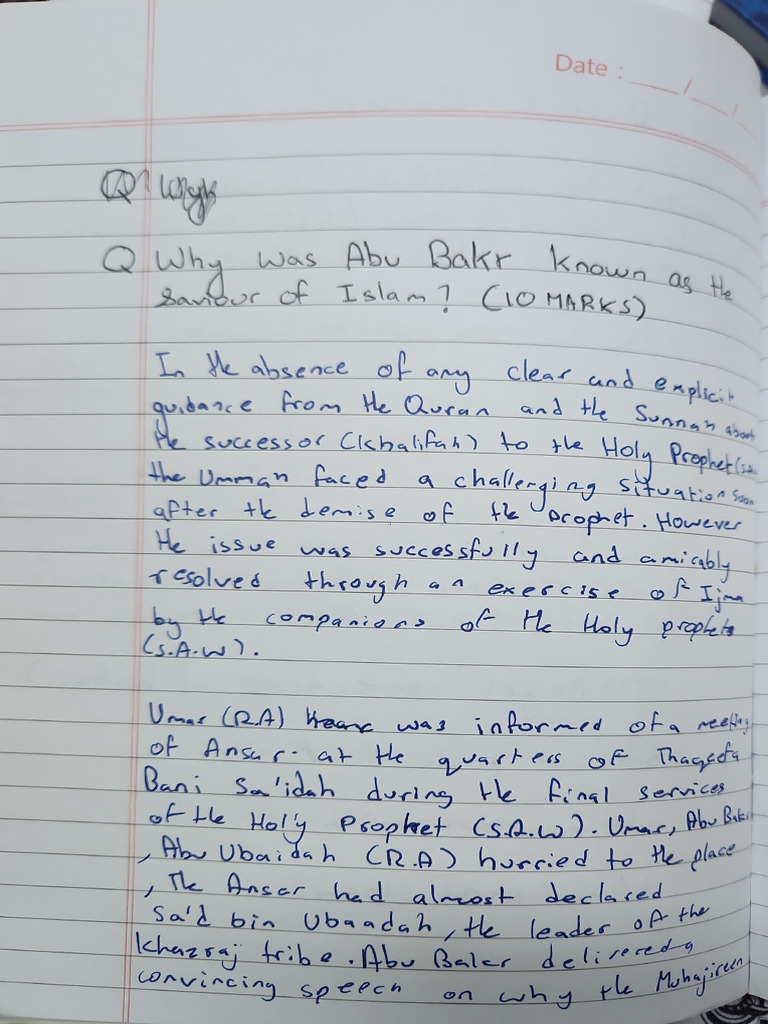 Date : __/__/__
Q1
Q Why was Abu Bakr known as the
saviour of Islam? (10 MARKS)
In the absence of any clear and explicit
guidance from the Quran and the Sunnah about
the successor (khalifah) to the Holy Prophet (s.a
the Ummah faced a challenging situation soon
after the demise of the prophet. However
the issue was successfully and amicably
resolved through an exercise of Ijma
by the companions of the Holy prophets
(S.A.W).
Umar (RA) was informed of a meeting
of Ansar. at the quarters of Thaqeefa
Bani Sa'idah during the final services
of the Holy Prophet (S.A.W). Umar, Abu Bakr
, Abu Ubaidah (R.A) hurried to the place
, The Ansar had almost declared
Sa'd bin Ubaadah, the leader of the
Khazraj tribe. Abu Bakr delivered a
convincing speech on why the Muhajireen